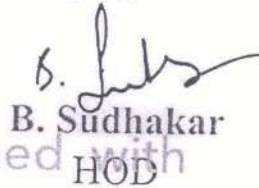 B. Sudhakar
ed with
HOD